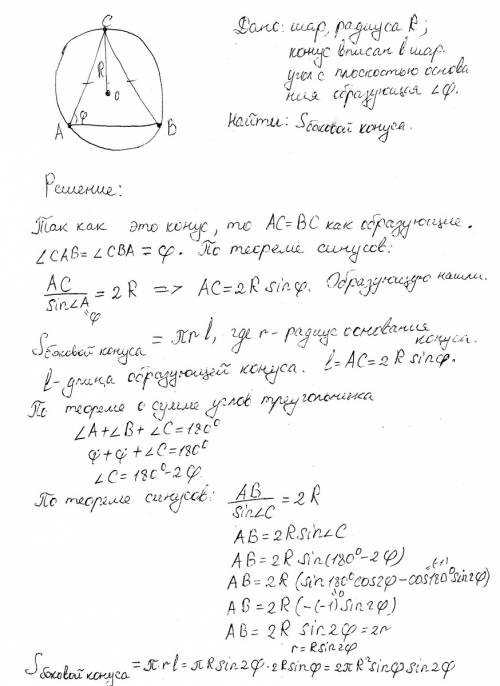 C
R
O
φ
A
B
Дано: шар, радиуса R;
конус вписан в шар.
угол с плоскостью основа
ния образующая ∠φ.
Найти: Sбоковой конуса.
Решение:
Так как это конус, то AC=BC как образующие.
∠CAB=∠CBA=φ. По теореме синусов:
AC/sin∠A = 2R => AC=2R sinφ. Образующую нашли.
"φ
Sбоковой конуса = πrl, где r- радиус основания
конуса.
l-длина образующей конуса. l=AC=2R sinφ.
По теореме о сумме углов треугольника
∠A+∠B+∠C=180°
φ+φ+∠C=180°
∠C=180°-2φ.
По теореме синусов: AB/sin∠C = 2R
AB=2R sin∠C
AB=2R sin(180°-2φ)
AB=2R (sin180°cos2φ-cos180°sin2φ)
"0
"(-1)
AB=2R(-(-1)sin2φ)
AB=2R sin2φ=2r
r=Rsin2φ
Sбоковой конуса=πrl=πRsin2φ·2Rsinφ=2πR²sinφ sin2φ